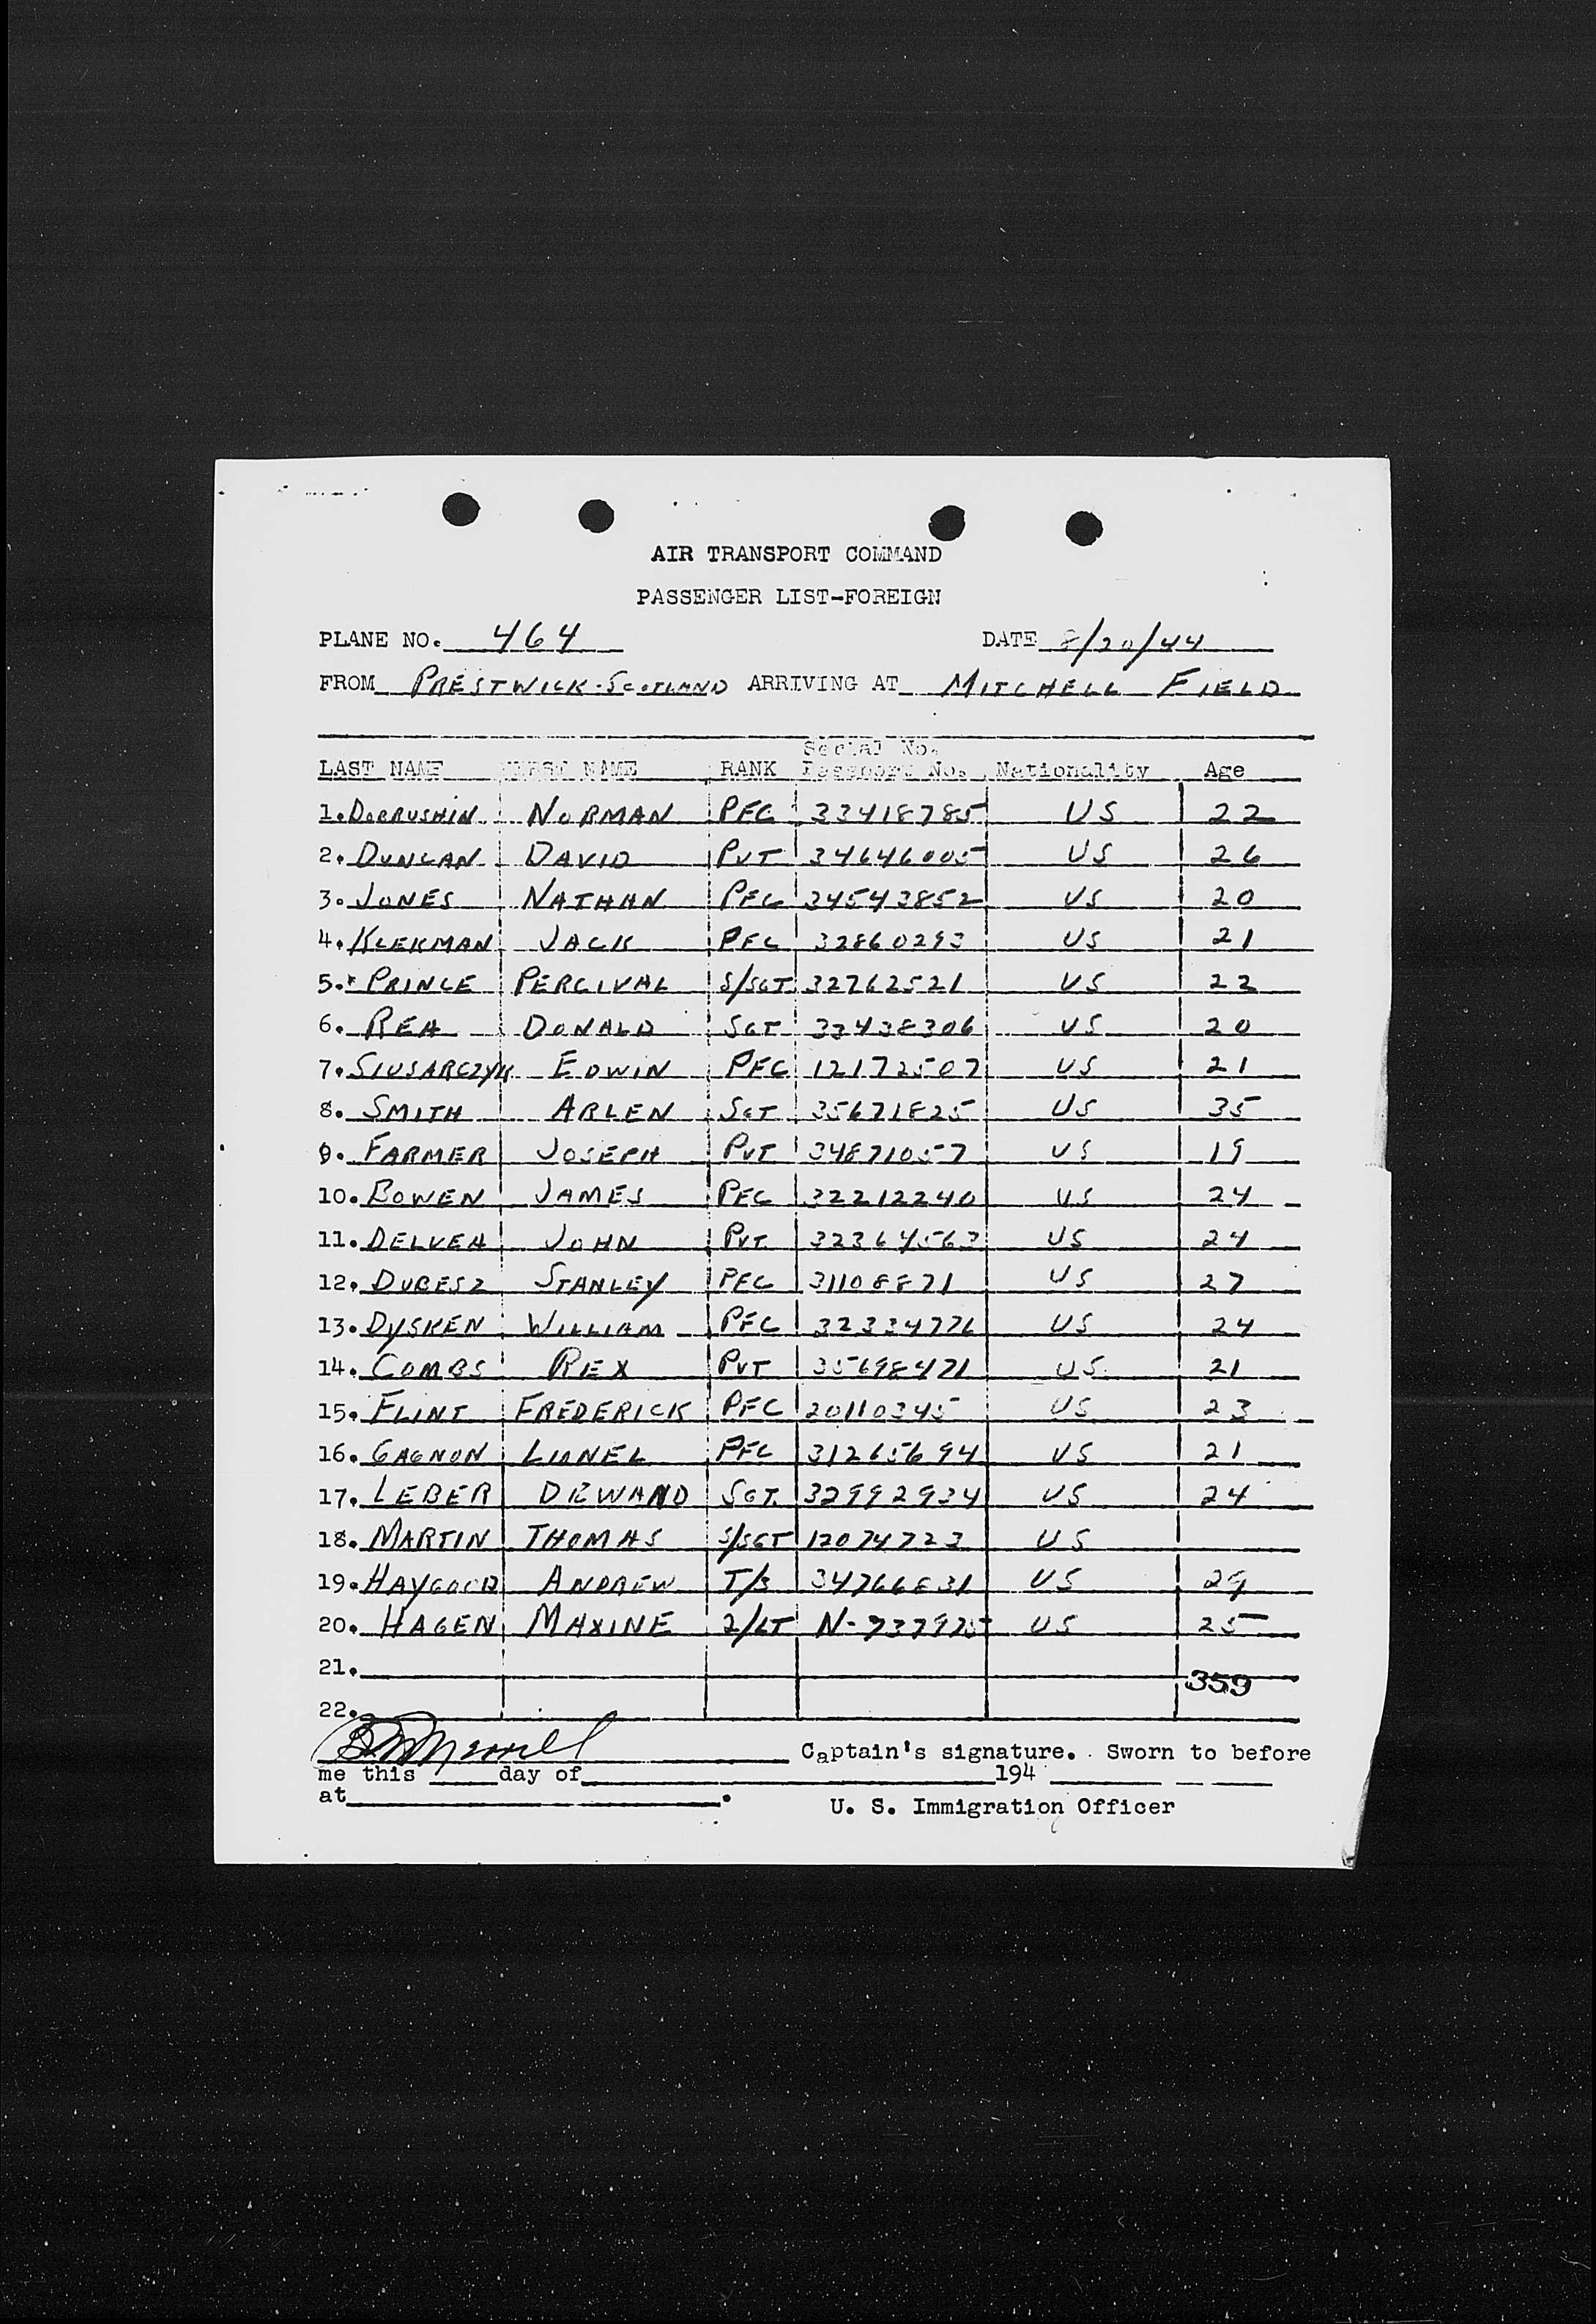 AIR TRANSPORT COMMAND
PASSENGER LIST-FOREIGN
PLANE NO. 464 DATE 8/20/44
FROM PRESTWICK-SCOTLAND ARRIVING AT MITCHELL FIELD
Serial No.
LAST NAME FIRST NAME RANK Passport No. Nationality Age
1. DOBRUSHIN NORMAN PFC 33418785 US 22
2. DUNCAN DAVID PVT 34646005 US 26
3. JONES NATHAN PFC 34543852 US 20
4. KLEKMAN JACK PFC 32860293 US 21
5. PRINCE PERCIVAL S/SGT 32762521 US 22
6. REA DONALD SGT 33438306 US 20
7. SIUSARCZYK EDWIN PFC 12172507 US 21
8. SMITH ARLEN SGT 35671825 US 35
9. FARMER JOSEPH PVT 34871057 US 19
10. BOWEN JAMES PFC 32212240 US 24
11. DELVEA JOHN PVT 32364563 US 24
12. DUBESZ STANLEY PFC 31108871 US 27
13. DYSKEN WILLIAM PFC 32334776 US 24
14. COMBS REX PVT 35698471 US 21
15. FLINT FREDERICK PFC 20110345 US 23
16. GAGNON LIONEL PFC 31265694 US 21
17. LEBER DEWAND SGT. 32992934 US 24
18. MARTIN THOMAS S/SGT 12074723 US
19. HAYGOOD ANDREW T/3 34766831 US 29
20. HAGEN MAXINE 2/LT N-737975 US 25
21.
359
22.
Captain's signature. Sworn to before
me this day of 194
at .
U. S. Immigration Officer